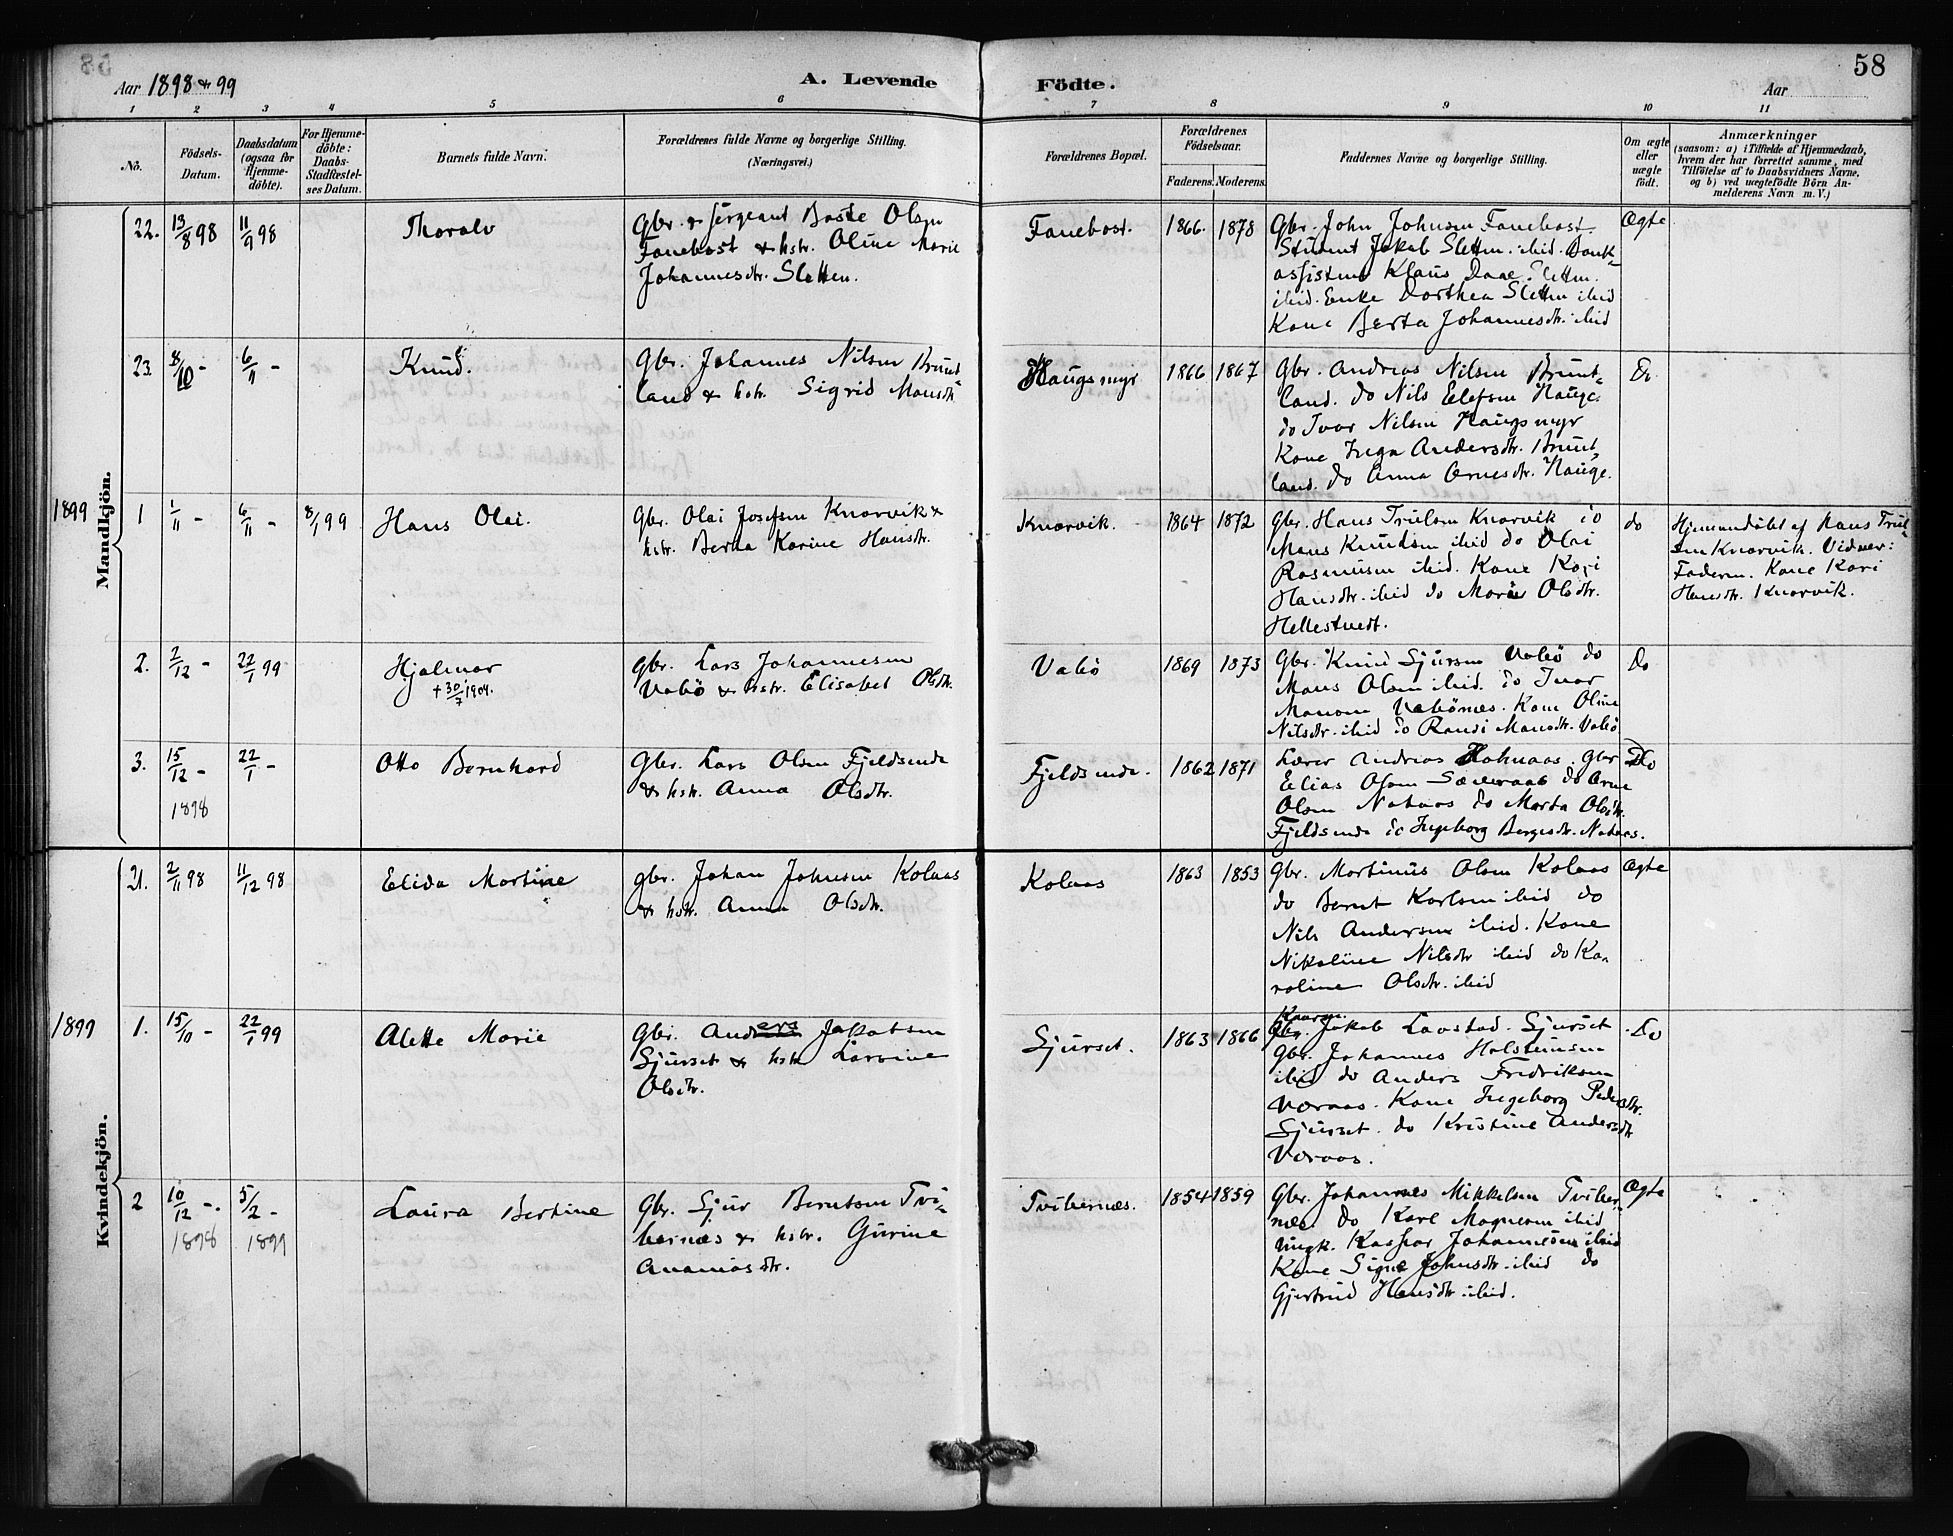 58
Aar 1898 & 99
A. Levende
Födte.
Aar
1 2 3 4 5 6 7 8 9 10 11
No.
Födsels-
Datum.
Daabsdatum
(ogsaa for
Hjemme-
döbte).
For Hjemme-
döbte:
Daabs-
Stadfæstel-
ses Datum.
Barnets fulde Navn.
Forældrenes fulde Navne og borgerlige Stilling.
(Næringsvei.)
Forældrenes Bopæl.
Forældrenes
Födselsaar.
Faderens. Moderens.
Faddernes Navne og borgerlige Stilling.
Om ægte
eller
uægte
födt.
Anmærkninger
(saasom: a) i Tilfælde af Hjemmedaab,
hvem der har forrettet samme, med
Tilföielse af to Daabsvidners Navne,
og b) ved uægtefödte Börn An-
melderens Navn m. V.)
Mandkjön.
22. 13/8 98 11/9 98
Thoralv
Gbr. & sergeant Baste Olsen
Fanebost & hstr. Oline Marie
Johannesdtr. Sletten.
Fanebost. 1866. 1878
Gbr. John Johnsen Fanebost.
Student Jakob Sletten. ibid. Bank-
assistent Klaus Daae Sletten.
ibid. Enke Dorthea Sletten ibid
Kone Berta Johannesdtr. ibid
Ægte
23. 8/10 - 6/11 -
Knud.
Gbr. Johannes Nilsen Brunt-
land & hstr. Sigrid Mansdtr
Haugsmyr 1866 1867
Gbr. Andreas Nilsen Brunt-
land. do Nils Elefsen Hauge.
do Ivar Nilsen Haugsmyr
Kone Inga Andersdtr. Brunt-
land. do Anna Arnesdtr. Hauge.
Do
1899
1 1/11 - 6/11 - 8/1 99
Hans Olai.
Gbr. Olai Josefsen Knarvik &
hstr. Berta Karine Hansdtr.
Knarvik. 1864 1872
Gbr. Hans Trulsen Knarvik do
Mons Knudsen ibid do Olai
Rasmussen ibid. Kone Kari
Hansdtr. ibid do Marie Olsdtr.
Hellestvedt.
do
Hjemmedöbt af Hans Trul-
sen Knarvik. Vidner:
Faderen. Kone Kari
Hansdtr. Knarvik.
2. 2/12 - 22/1 99
Hjalmar
+ 30/7 1904.
Gbr. Lars Johannesen
Vabö & hstr. Elisabet Olsdtr.
Vabö 1869 1873
Gbr. Knud Sjursen Vabö do
Mons Olsen ibid. do Ivar
Monsen Vabönes. Kone Oline
Nilsdtr. ibid do Randi Monsdtr. Vabö
Do
3. 15/12 - 22/1 -
1898
Otto Bernhard
Gbr. Lars Olsen Fjeldsende
& hstr. Anna Olsdtr.
Fjeldsende. 1862 1871
Lærer Andreas Hopnaas. Gbr
Elias Olsen Sæveraas do Arne
Olsen Nataas do Marta Olsdtr.
Fjeldsende do Ingeborg Bergesdtr. Nataas.
Do
Kvindekjön.
21. 2/11 98 11/12 98
Elida Martine
gbr. Johan Johnsen Kolaas
& hstr. Anna Olsdtr.
Kolaas 1863 1853
Gbr. Martinus Olsen Kolaas
do Bernt Karlsen ibid do
Nils Andersen ibid. Kone
Nikoline Nilsdtr ibid do Ka-
roline Olsdtr. ibid
Ægte
1899
1. 15/10 - 22/1 99
Alette Marie
Gbr. Anders Jakobsen
Sjurset & hstr Lavrine
Olsdtr.
Sjurset. 1863 1866
Gbr. Jakob Lavstad. Sjurset
Gbr. Johannes Halsteinsen
ibid do Anders Fredriksen
Væraas. Kone Ingeborg Pedersdtr.
Sjurset. do Kristine Andersdtr
Væraas.
Do
2 10/12 - 5/2 -
1898 1899
Laura Bertine
Gbr. Sjur Berntsen Tvi-
bernæs & hstr. Gurine
Ananiasdtr.
Tvibernæs. 1854 1859
Gbr. Johannes Mikkelsen Tviber-
næs do Karl Magnesen ibid
Ungk. Kaspar Johannesen ibid
Kone Signe Johnsdtr. ibid do
Gjertrud Hansdtr. ibid.
Ægte